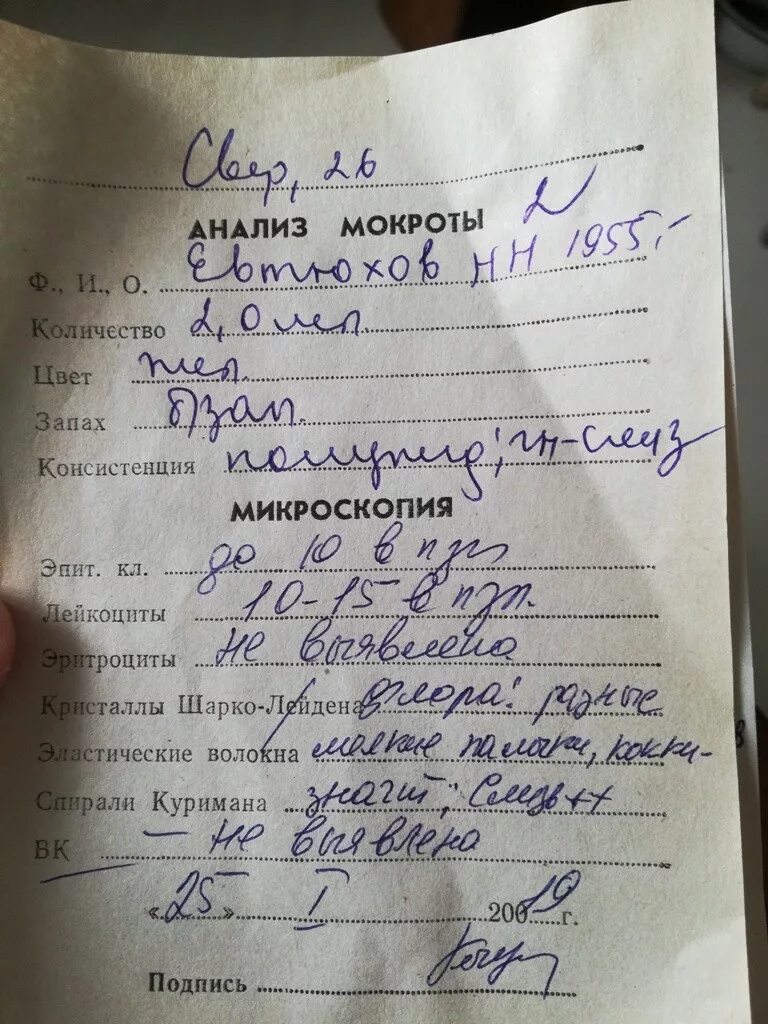 Свер, 26
АНАЛИЗ МОКРОТЫ 2
Ф., И., О. Евтюхов НН 1955г
Количество 2,0 мл.
Цвет жел.
Запах б/зап.
Консистенция полужид; гн-слиз
МИКРОСКОПИЯ
Эпит. кл. до 10 в п/зр
Лейкоциты 10-15 в п/зр.
Эритроциты не выявлено
Кристаллы Шарко-Лейдена флора: разные
Эластические волокна мелкие палочки, кокки-
Спирали Куримана значит; слизь ++
ВК — не выявлена
«25» I 2009 19 г.
Подпись